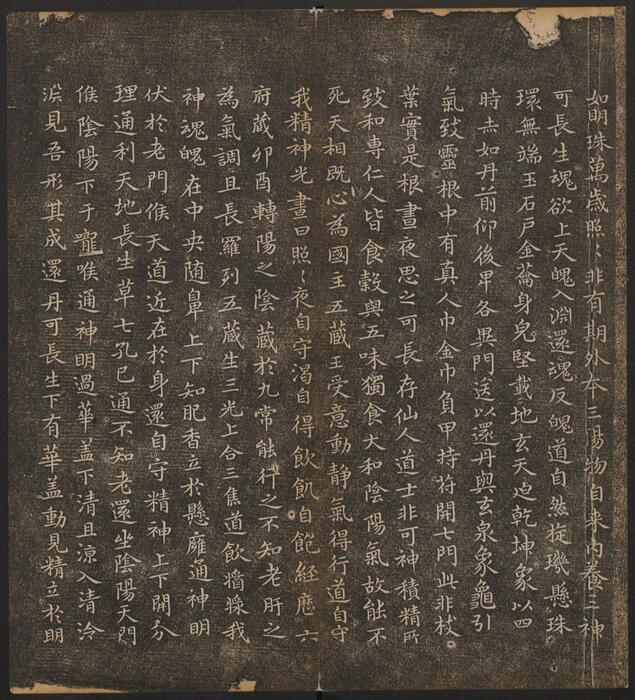 如明珠萬歲照〻非有期外本三陽物自来内養三神
可長生魂欲上天魄入淵還魂反魄道自然㧞璣懸珠
環無端玉石戶金籥身皃堅載地玄天迫乾坤象以四
時赤如丹前仰後卑各異門送以還丹與玄泉象龜引
氣致靈根中有真人巾金巾負甲持符開七門此非枝
葉實是根晝夜思之可長存仙人道士非可神積精所
致和專仁人皆食穀與五味獨食大和陰陽氣故能不
死天相既心為國主五藏王受意動静氣得行道自守
我精神光晝日照〻夜自守渴自得飲飢自飽經歷六
府藏卯酉轉陽之陰藏於九常能行之不知老肝之
為氣調且長羅列五藏生三光上合三焦道飲漿我
神魂魄在中央随鼻上下知肥香立於懸廱通神明
伏於老門候天道近在於身還自守精神上下開分
理通利天地長生草七孔已通不知老還坐陰陽天門
候陰陽下于嚨喉通神明過華盖下清且涼入清泠
渕見吾形其成還丹可長生下有華盖動見精立於明